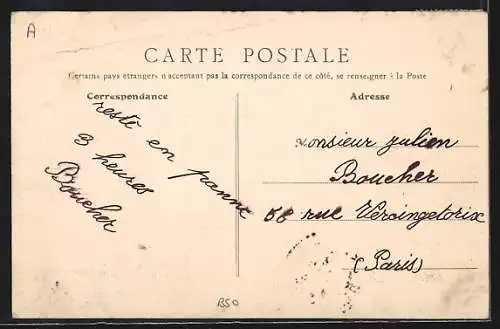 A
CARTE POSTALE
Certains pays étrangers n'acceptant pas la correspondance de ce côté, se renseigner à la Poste
Correspondance
resté en panne
3 heures
Boucher
Adresse
Monsieur julien
Boucher
58 rue Vercingetorix
(Paris)
BSO